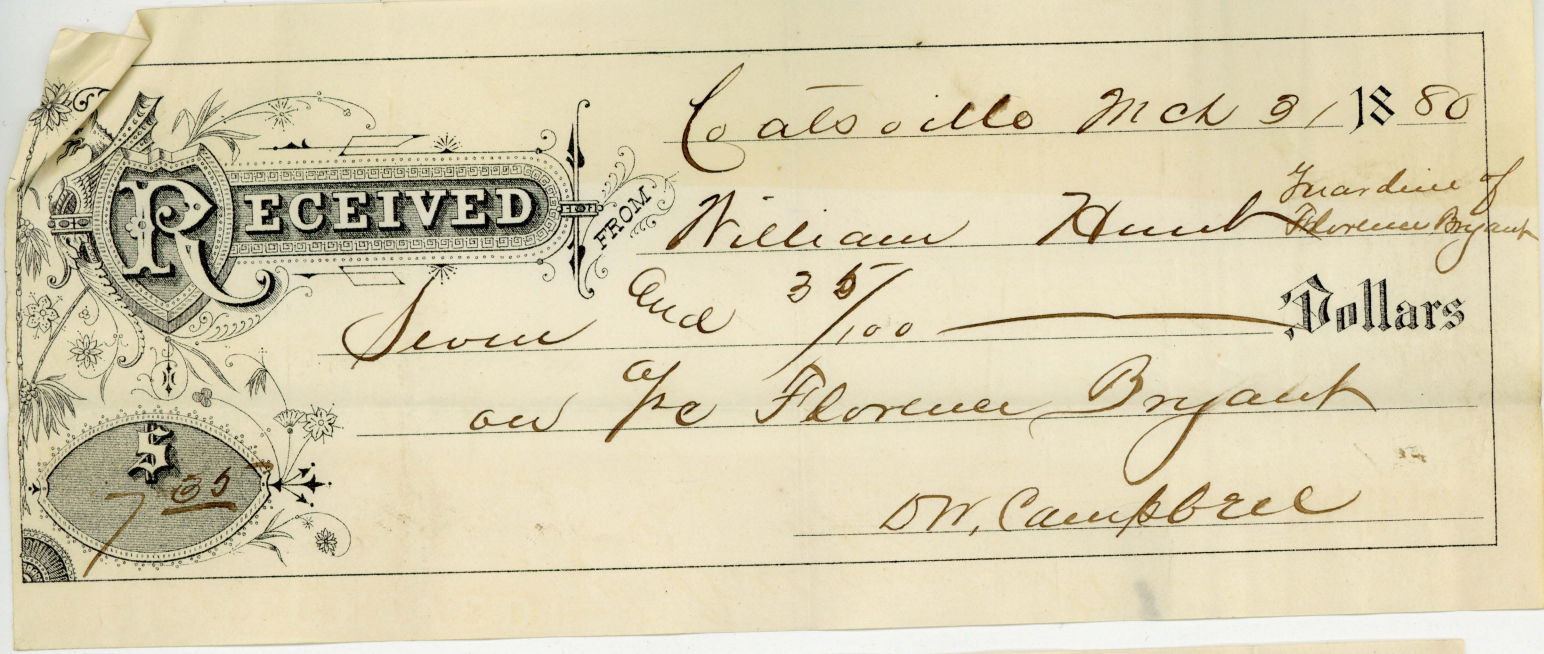 Coatsville Mch 31 1880
RECEIVED FROM William Hunt Guardine of
Florence Bryant
Seven and 35/100 Dollars
on a/c Florence Bryant
$ 7 35
DW. Campbell